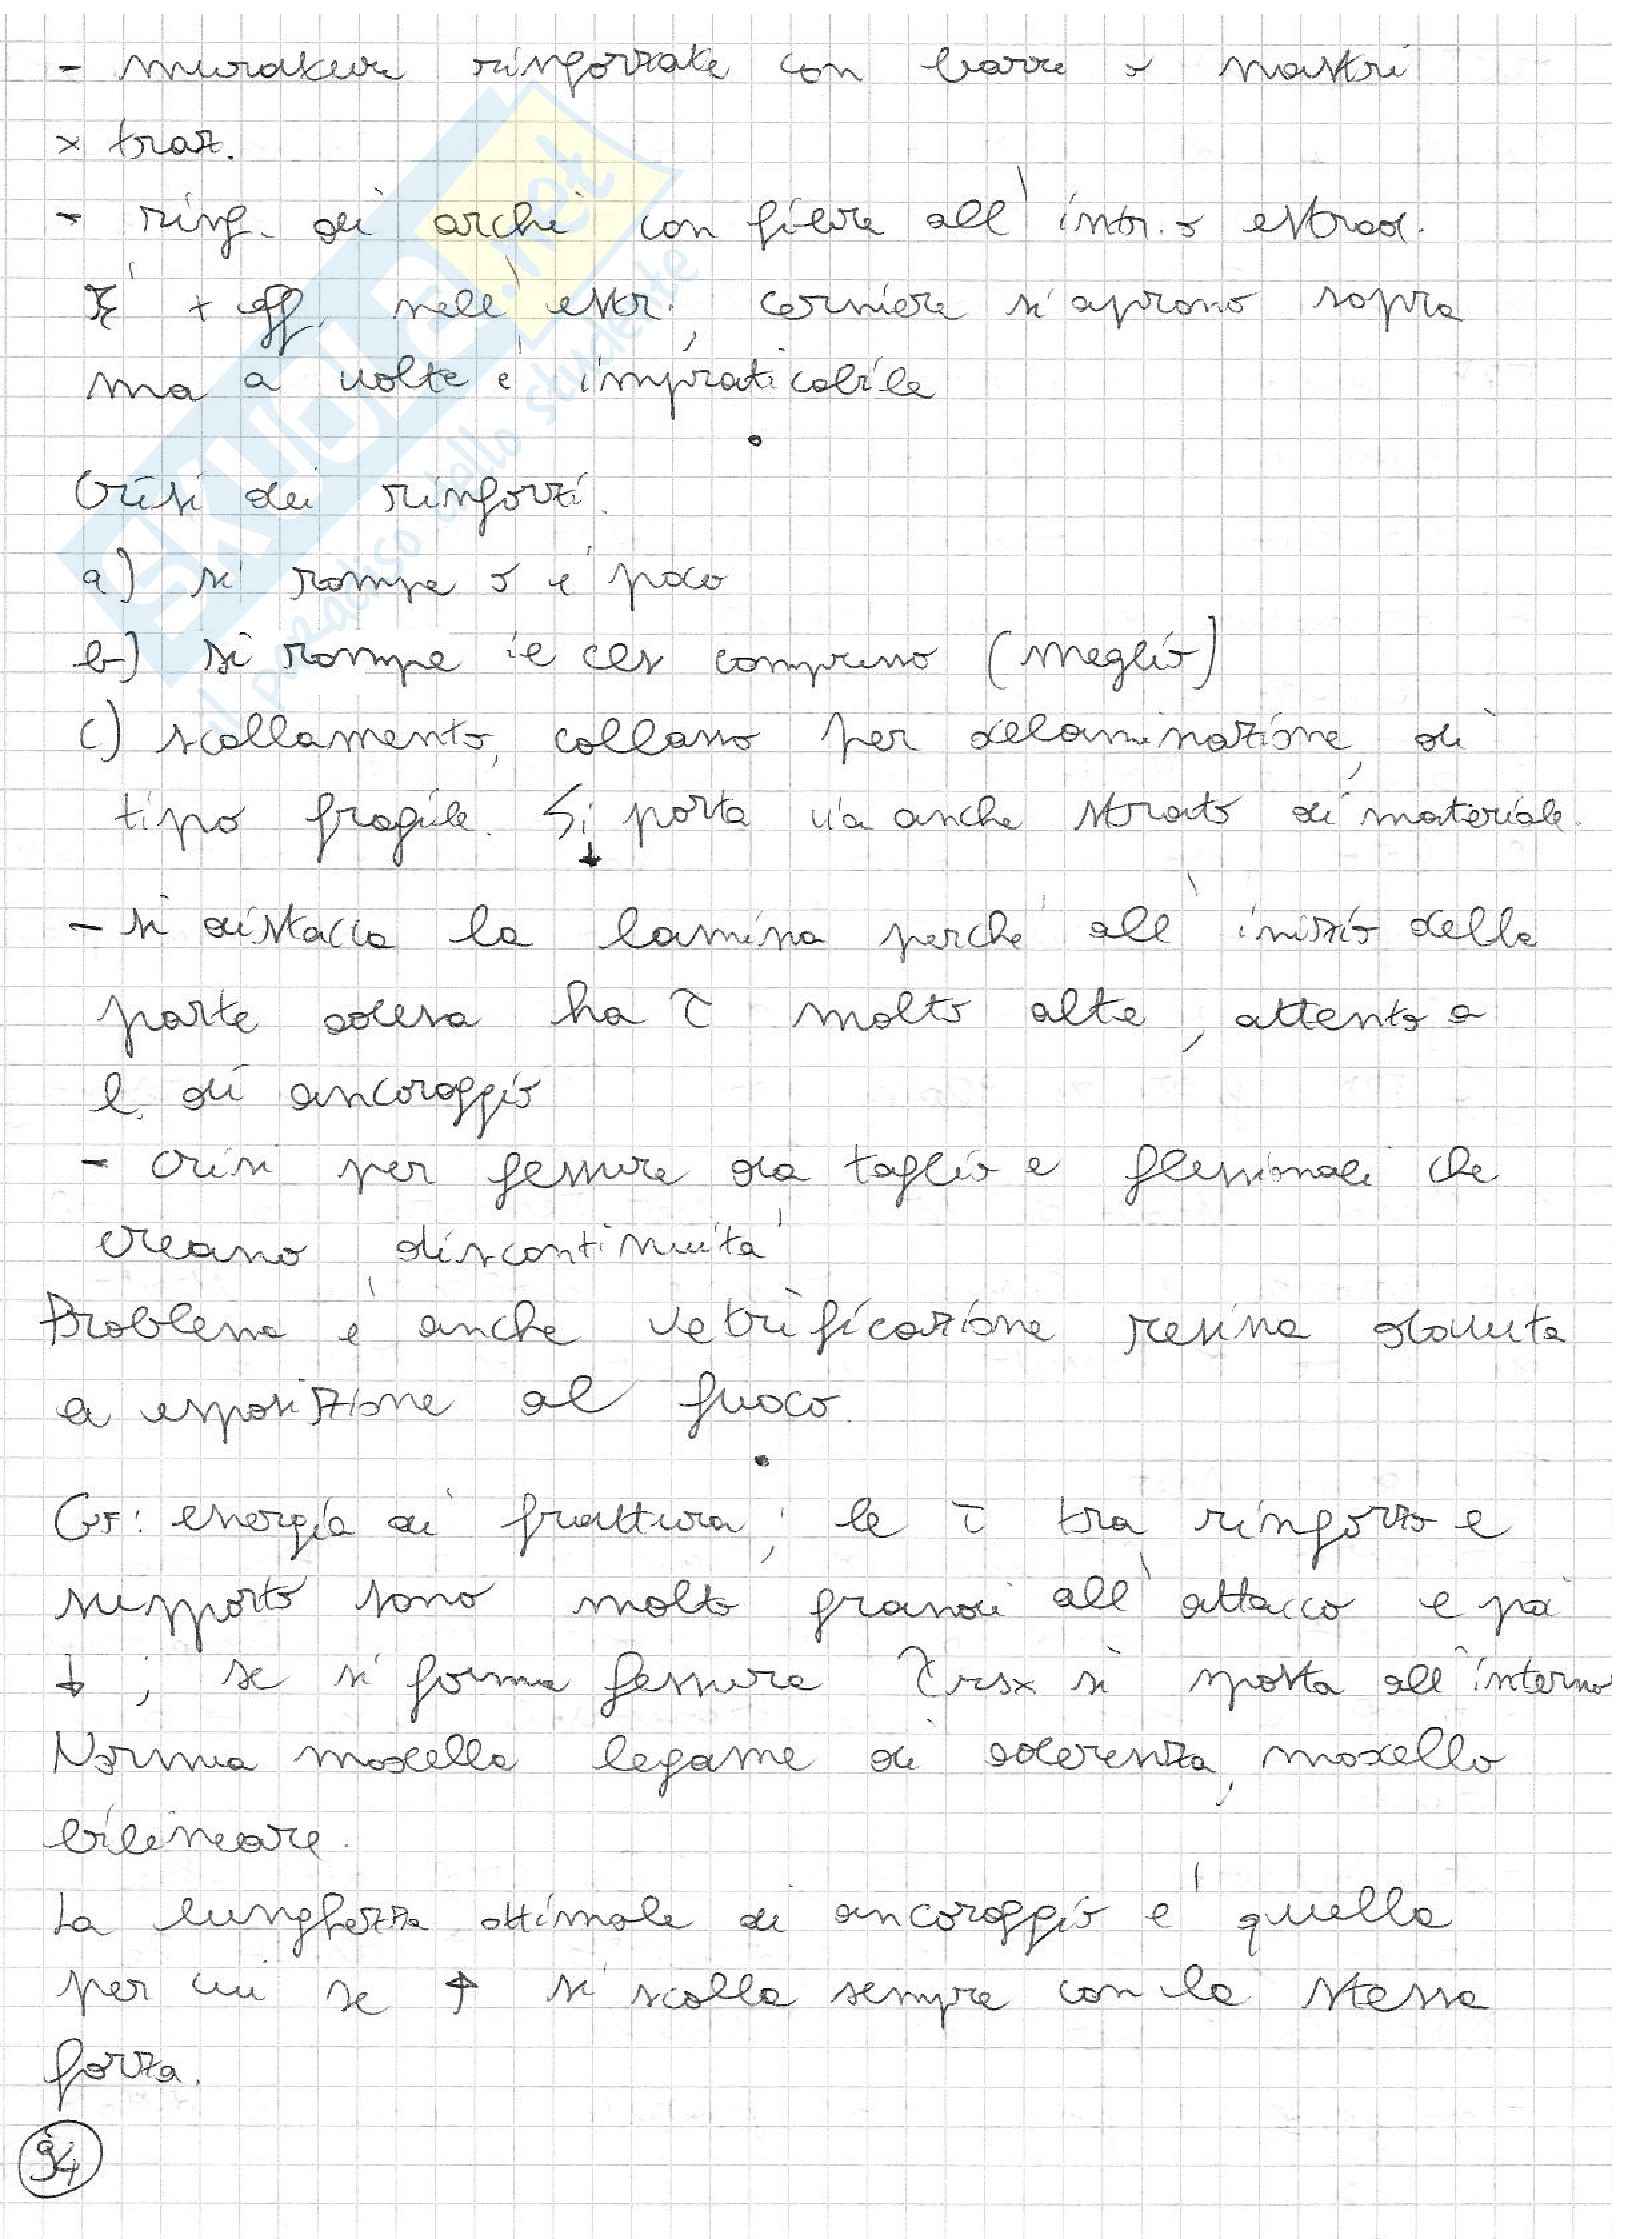 - murature rinforzate con barre o nastri
x traz.
- rinf. di archi con fibre all'intr. o estrad.
È + eff. nell'estr., cerniere si aprono sopra
ma a volte è impraticabile
Crisi dei rinforzi.
a) si rompe o è poco
b) si rompe il cls compresso (meglio)
c) scollamento, collasso per delaminazione, di
tipo fragile. Si porta via anche strato di materiale.
↓
- si distacca la lamina perché all'inizio della
parte adesa ha τ molto alte, attento a
l. di ancoraggio
- crisi per fessure da taglio e flessionali che
creano discontinuità
Problema è anche vetrificazione resina dovuta
a esposizione al fuoco.
energia di frattura; le τ tra rinforzo e
supporto sono molto grandi all'attacco e poi
↓; se si forma fessura τmax si sposta all'interno
Norma modella legame di aderenza, modello
bilineare.
La lunghezza ottimale di ancoraggio è quella
per cui se ↑ si scolla sempre con la stessa
forza.
94
SKUOLA.net
il paradiso dello studente